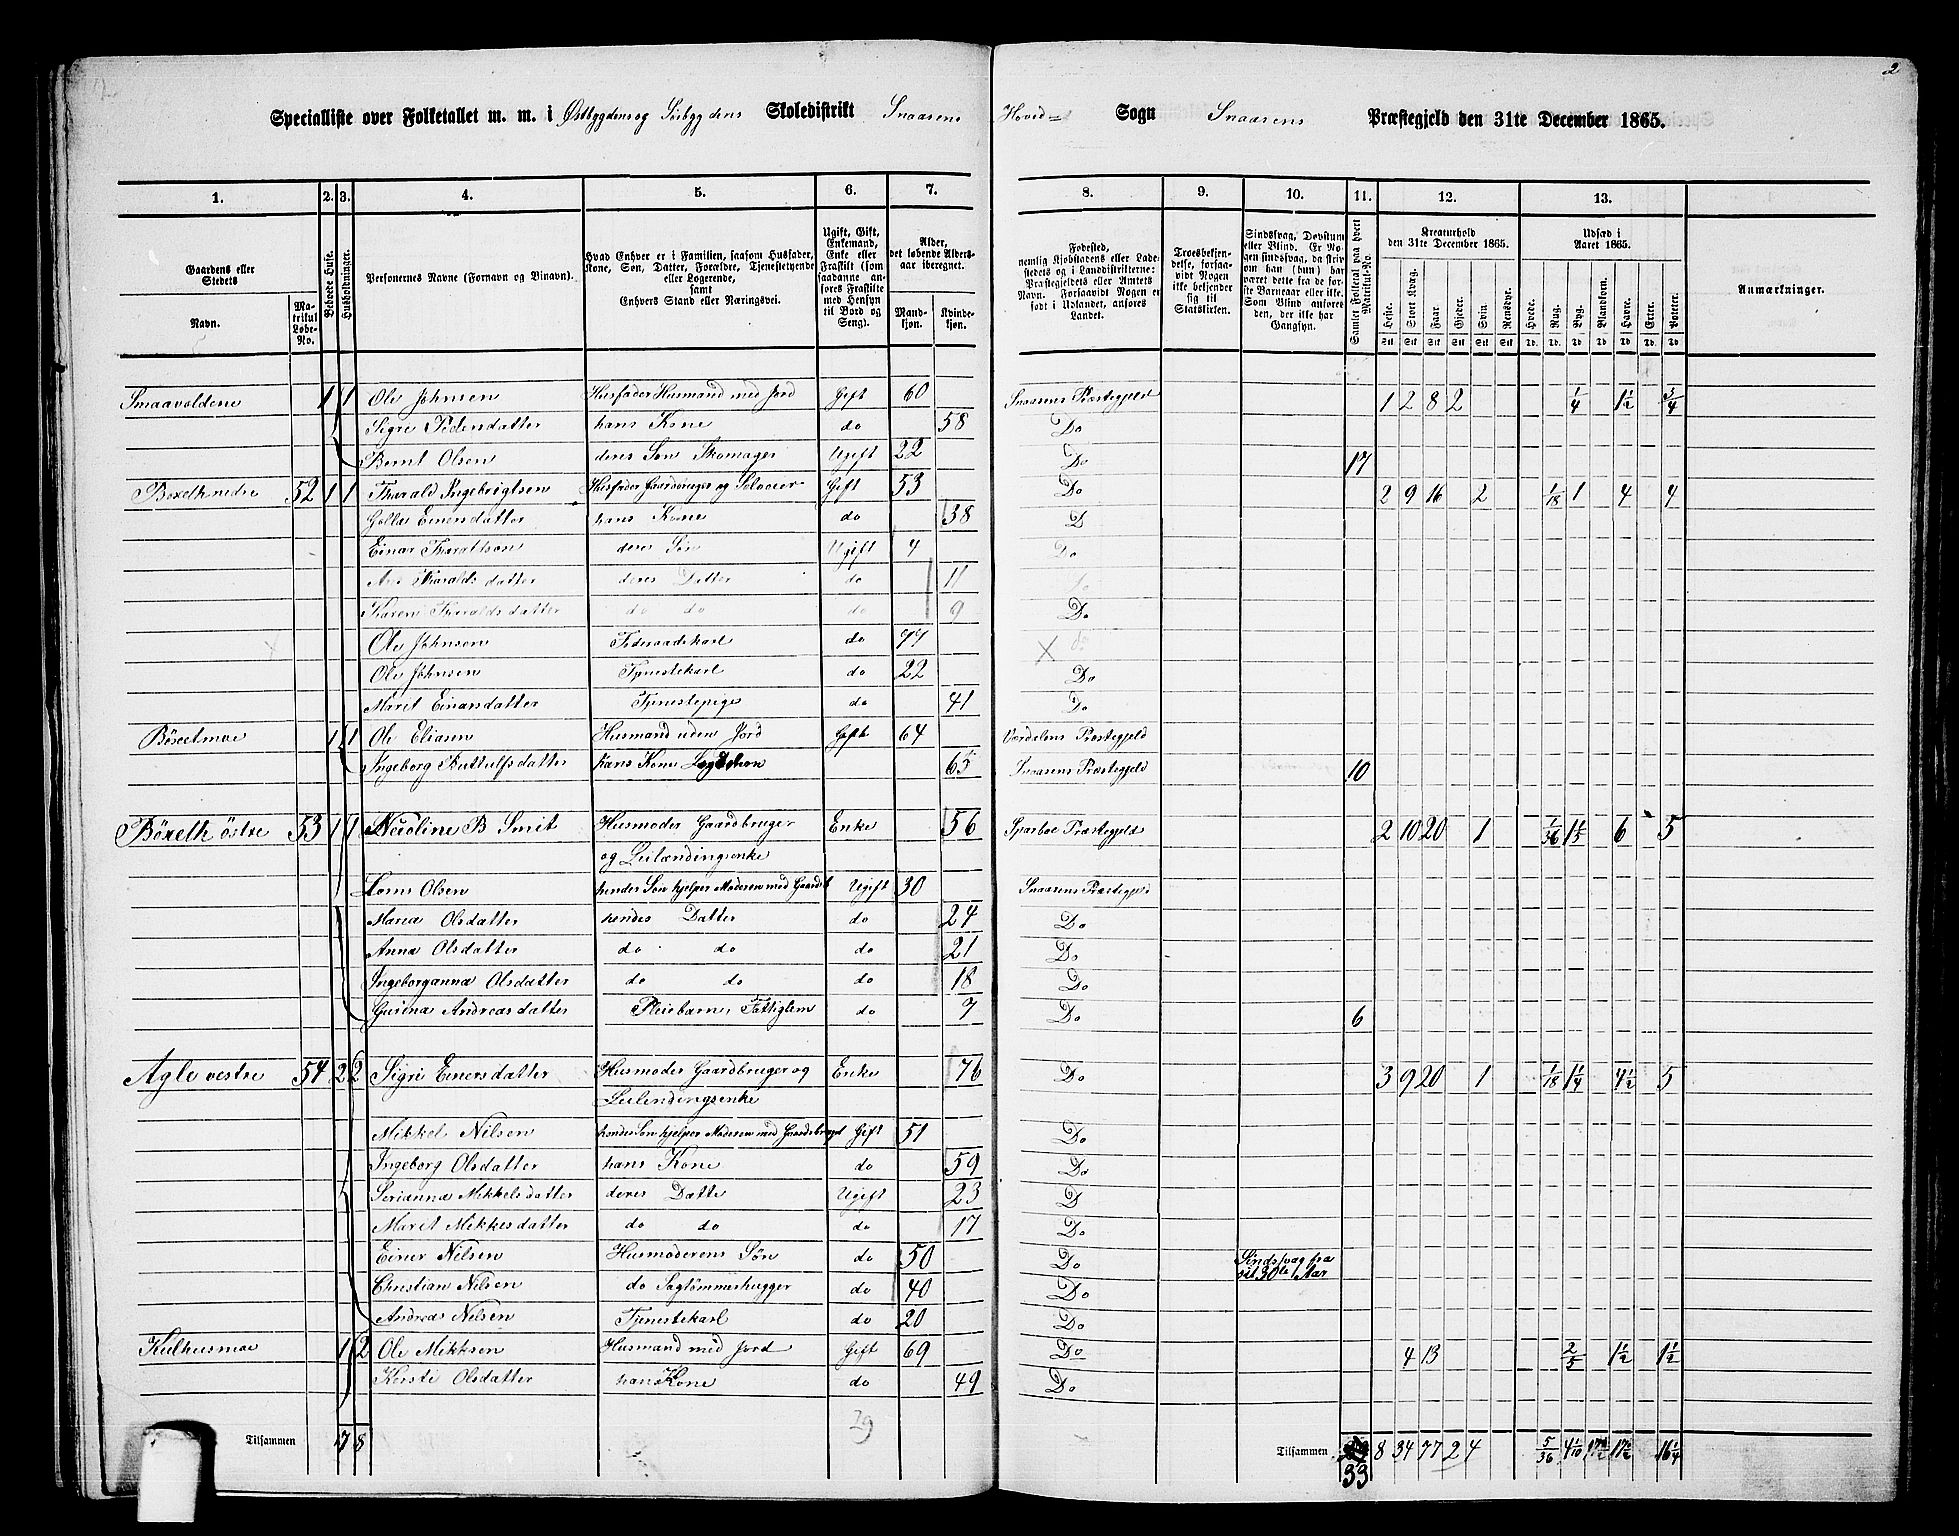 2
Specialliste over Folketallet m. m. i Østbygdens og Sørbygdens Skoledistrikt Snaasens Hoved- Sogn Snaasens Præstegjeld den 31te December 1865.
1. 2. 3. 4. 5. 6. 7. 8. 9. 10. 11. 12. 13.
Gaardens eller Stedets Navn.
Matrikul Løbe-No.
Beboede Huse.
Husholdninger.
Personernes Navne (Fornavn og Tilnavn).
Hvad Enhver er i Familien, saasom Husfader, Kone, Søn, Datter, Forældre, Tjenestetyende eller Logerende, samt Enhvers Stand eller Næringsvei.
Ugift, Gift, Enkemand, Enke eller Fraskilt (som saadanne anføres Fraskilte med Hensyn til Bord og Seng).
Alder, det løbende Alders-aar iberegnet.
Mandkjøn. Kvindekjøn.
Fødested, nemlig Kjøbstadens eller Ladestedets og i Landdistrikterne: Præstegjeldets eller Amtets Navn. Forsaavidt Nogen er født i Udlandet, anføres Landet.
Troesbekjendelse, forsaavidt Nogen ikke bekjender sig til Statskirken.
Sindssvag, Døvstum eller Blind. Er Nogen sindssvag, da skriv om han (hun) har været dette fra før Barneaar eller ikke. Som Blind anføres den, der ikke har Gangsyn.
Samlet Folketal paa hvert Matrikul-No.
Kreaturhold den 31te December 1865.
Heste. Stort Kvæg. Faar. Gjeder. Svin. Rensdyr.
Udsæd i Aaret 1865.
Hvede. Rug. Byg. Blandkorn. Havre. Erter. Poteter.
Anmærkninger.
Smaavoldene 1 1 Ole Johnsen Husfader Husmand med Jord Gift 60 Snaasens Præstegjeld 1 2 8 2 1/4 1 1/2 3/4
Sigri Pedersdatter hans Kone do 58 Do
Bernt Olsen deres Søn Skomager Ugift 22 Do 17
Bøxelh nedre 52 1 1 Tharald Ingebrigtsen Husfader Gaardbruger og Selveier Gift 53 Do 2 9 16 2 1/18 1 4 4
Golla Einersdatter hans Kone do 38 D
Einar Tharaltson deres Søn Ugift 4 Do
Tharaldsdatter deres Datter do 11 do
Karen Tharaldsdatter do do do 9 Do
Ole Johnsen Føderaadskarl do X do
Ole Johnsen Tjenestekarl do 22 Do
Marit Einarsdatter Tjenestepige do 41 Do
Bøxelmoe 1 1 Ole Eliasen Husmand uden Jord Gift 64 Værdalens Præstegjeld
Ingeborg Buttulfsdatter hans Kone 65 Snaasens Præstegjeld 10
Bøxelh østre 53 1 1 B Smit Husmoder Gaardbruger Enke 56 Sparboe Præstegjeld 2 10 20 1 1/36 1 1/5 6 5
og Leilændingsenke
Lorns Olsen hendes Søn hjelper Moderen med Gaardsb Ugift 30 Snaasens Præstegjeld
Maria Olsdatter hendes Datter do 24 Do
Anna Olsdatter do do do 21 Do
Ingeborganna Olsdatter do do do 18 Do
Gurina Andreasdatter Pleiebarn Fattiglem do 7 Do 6
Agle vestre 54 2 2 Sigri Einersdatter Husmoder Gaardbruger og Enke 76 Do 3 9 20 1 1/18 1 1/4 4 1/2 5
Leilendingsenke
Mikkel Nilsen hendes Søn hjelper Moderen med Gaardsbruget Gift 51 Do
Ingeborg Olsdatter hans Kone do 59 Do
Serianna Mikkelsdatter deres Datte Ugift 23 D
Marit Mikkesdatter do do do 17 Do
Einer Nilsen Husmoderens Søn do 50 Do Sindssvag fra
sit 30te Aar
Christian Nilsen do Sagtømmerhugger do 40 Do
Andreas Nilsen Tjenestekarl do 20 Do
Kulhusmoe 1 2 Ole Mikksen Husmand med Jord Gift 69 Do 4 13 2/5 1 1/2 1 1/2
Kirsti Olsdatter hans Kone do 49 Do
29
Tilsammen 7 8
Tilsammen 33 8 34 77 2 4 5/36 4 1/10 17 1/2 16 1/4